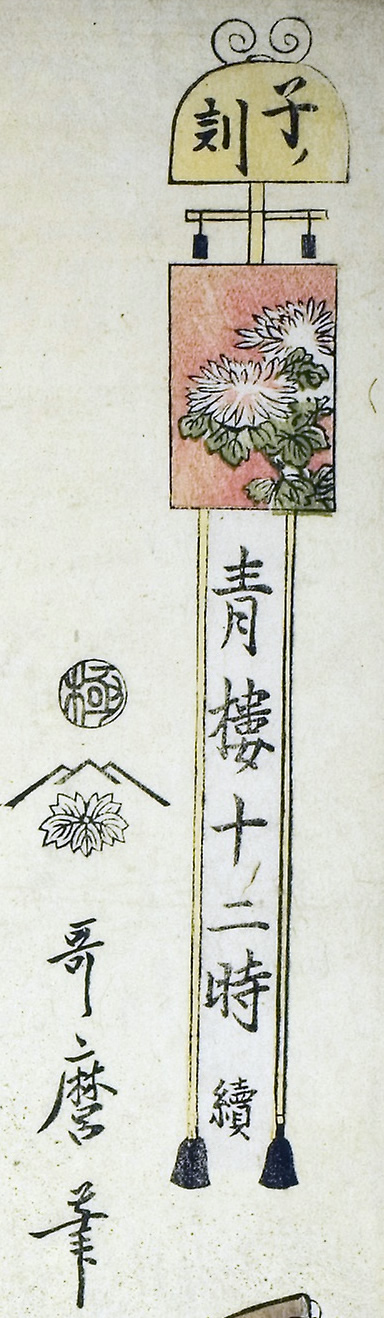 子ノ
刻
青樓十二時
續
極
哥麿筆